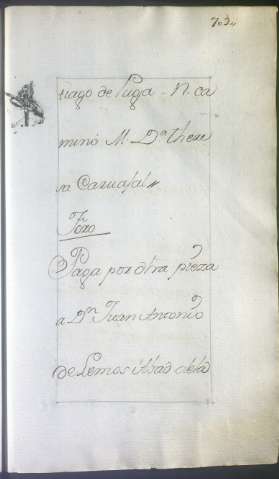 703,,
tiago de Puga. N. ca
mino M. Dª. There
sa Caruajal,,
Foro
Paga por otra pieza
a Dⁿ. Juan Antonio
de Lemos Abad dela